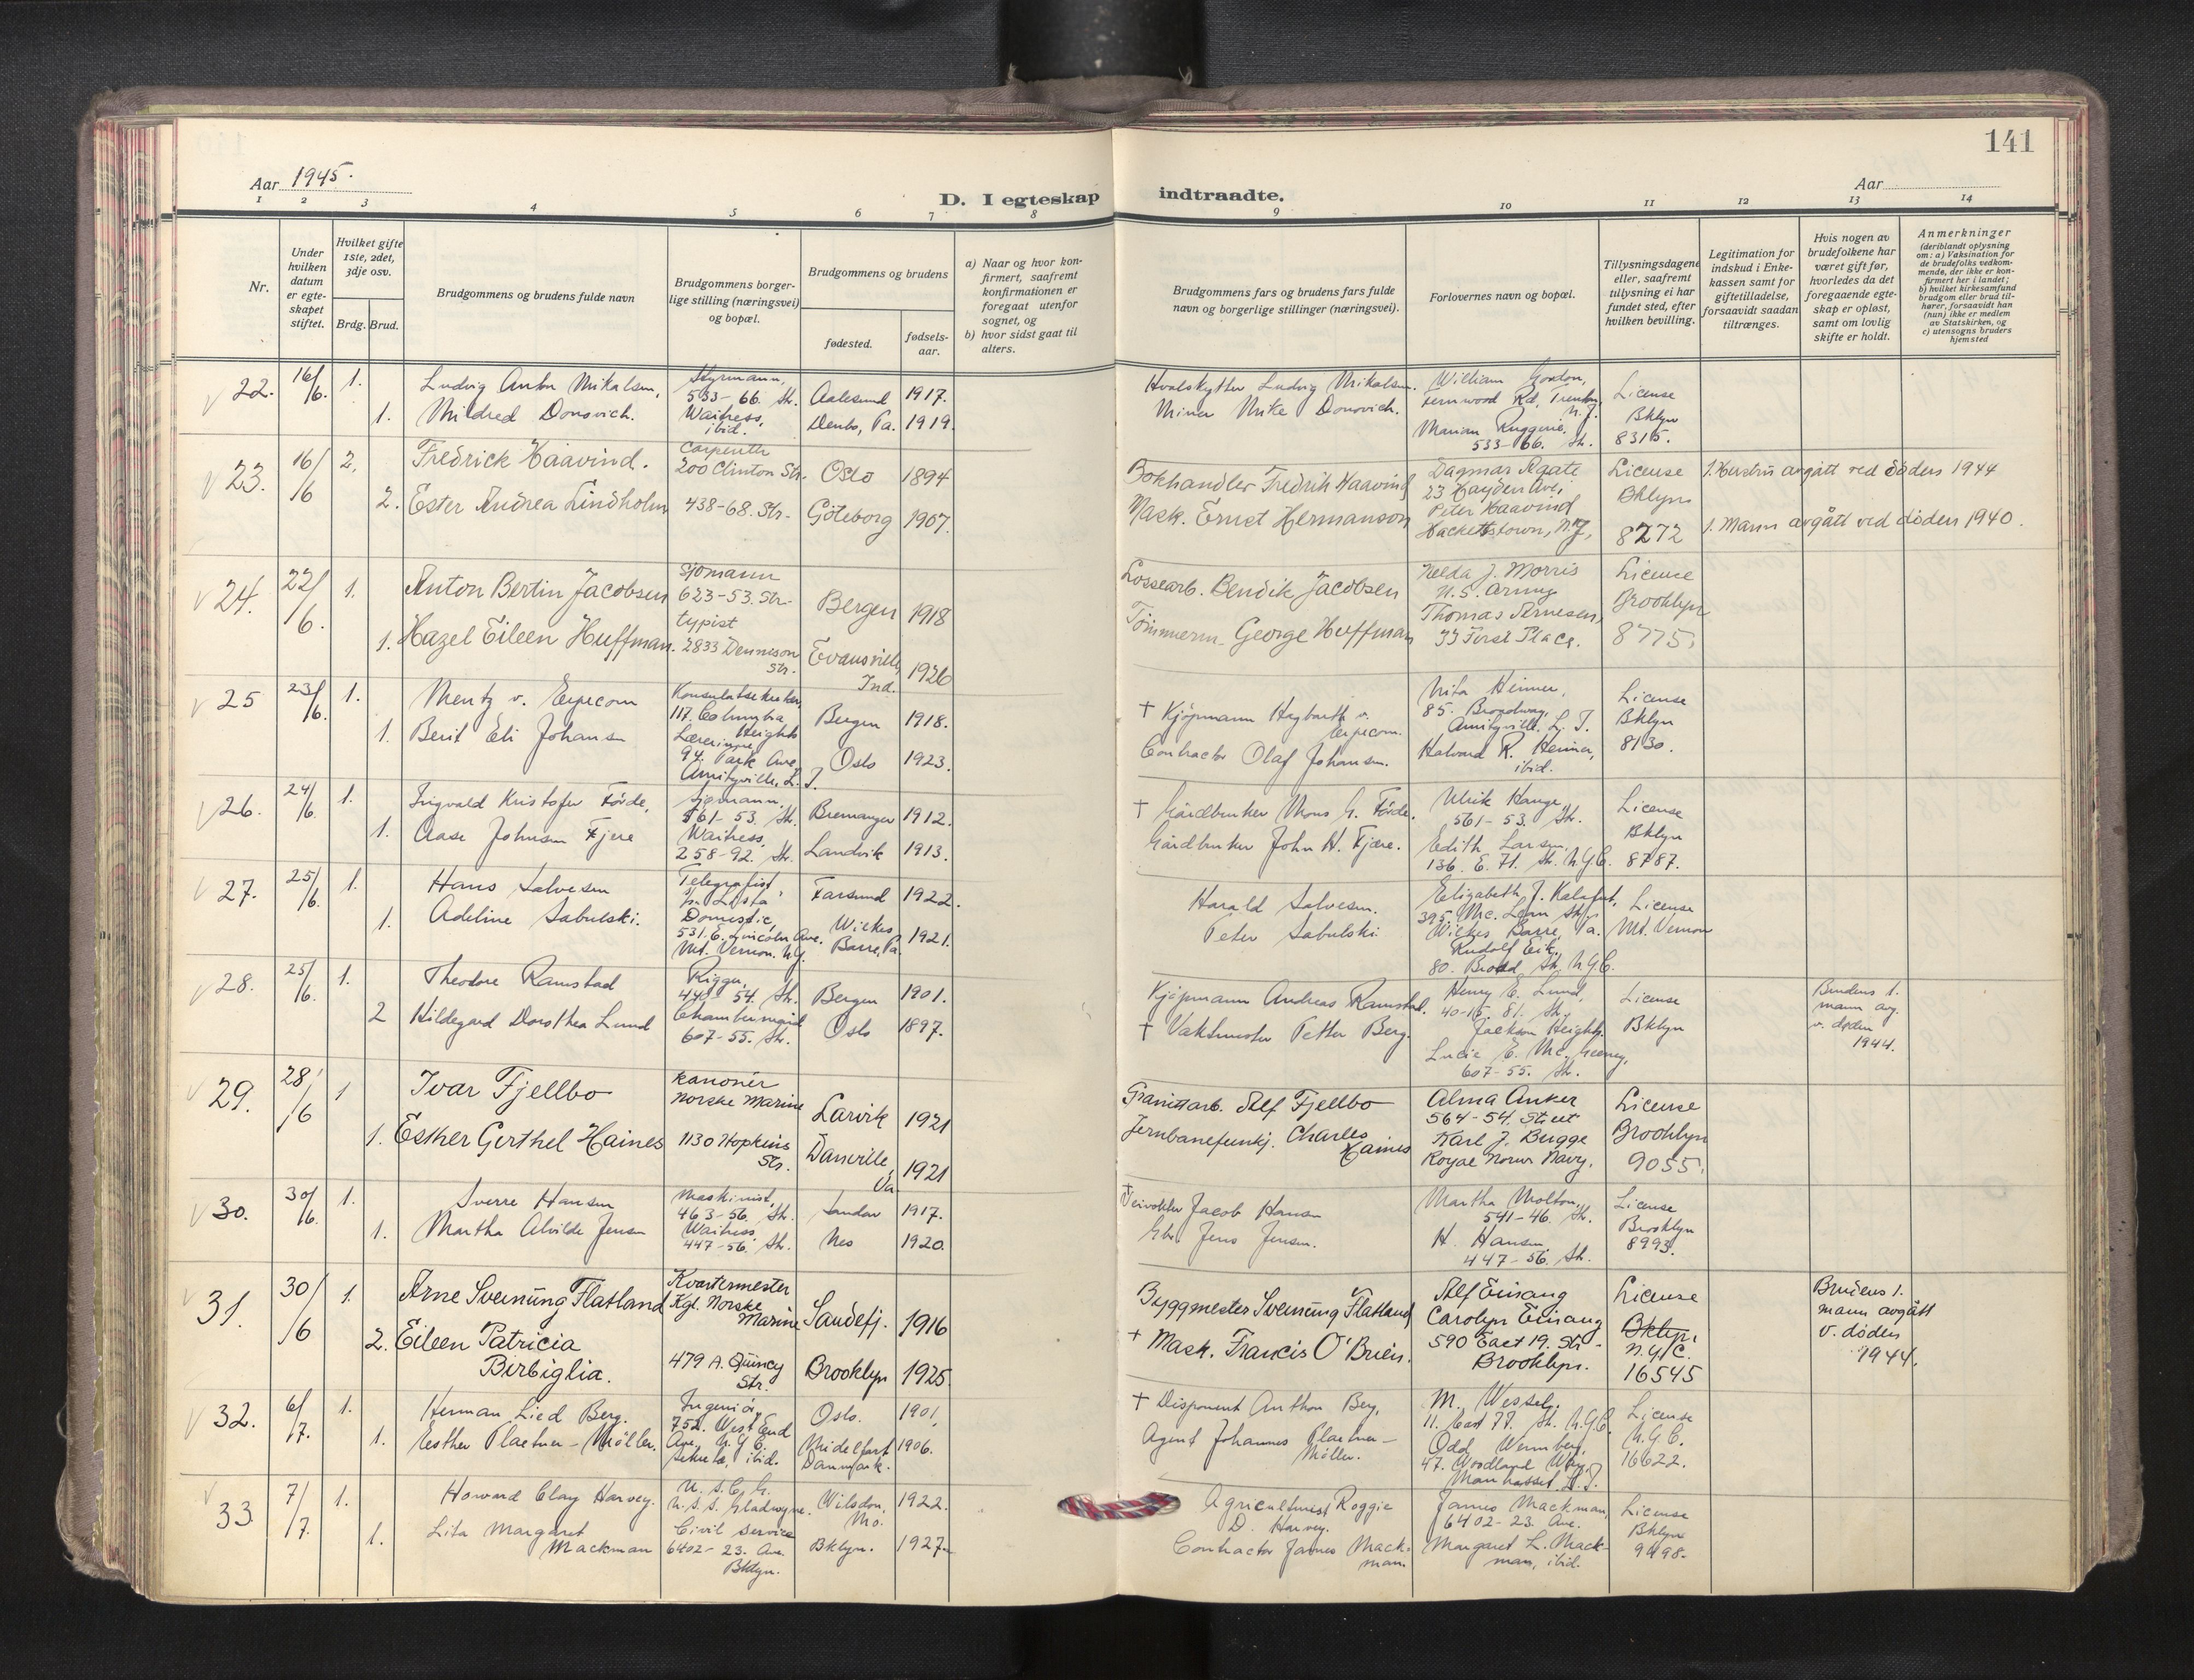 141
Aar 1945.
Aar
D. I egteskap indtraadte.
1 2 3 4 5 6 7 8 9 10 11 12 13 14
Nr.
Under hvilken datum er egteskapet stiftet.
Hvilket gifte 1ste, 2det, 3dje osv.
Brdg. Brud.
Brudgommens og brudens fulde navn
Brudgommens borgerlige stilling (næringsvei) og bopæl.
Brudgommens og brudens
fødested.
fødselsaar.
a) Naar og hvor konfirmert, saafremt konfirmationen er foregaat utenfor sognet, og
b) hvor sidst gaat til alters.
Brudgommens fars og brudens fars fulde navn og borgerlige stillinger (næringsvei).
Forlovernes navn og bopæl.
Tillysningsdagene eller, saafremt tillysning ei har fundet sted, efter hvilken bevilling.
Legitimation for indskud i Enkekassen samt for giftetilladelse, forsaavidt saadan tiltrænges.
Hvis nogen av brudefolkene har været gift før, hvorledes da det foregaaende egteskap er opløst, samt om lovlig skifte er holdt.
Anmerkninger
(deriblandt oplysning om: a) Vaksination for de brudefolks vedkommende, der ikke er konfirmert her i landet;
b) hvilket kirkesamfund brudgom eller brud tilhører, forsaavidt han (hun) ikke er medlem av Statskirken, og
c) utensogns bruders hjemsted
22. 16/6. 1. Ludvig Anton Mikalsen, Styrmann, 533-66. Str. Aalesund 1917.
1. Mildred Donovich. Waitress, ibid. Denbo, Pa. 1919.
Hvalskytter Ludvig Mikalsen.
Miner Mike Donovich.
William Gordon, Fernwood Rd, Trenton, N.J.
Marian Ruggerie, 533-66. Str.
License Bklyn 8315.
23. 16/6 2. Fredrick Haavind. Carpenter 200 Clinton Str. Oslo 1894
2. Ester Andrea Lindholm 438-68. Str. Göteborg 1907.
Bokhandler Fredrik Haavind
Mask. Ernst Hermanson
Dagmar Agate 23 Hayden Ave,
Peter Haavind Hackettstown, N.J,
License Bklyn 8272
1. Hustru avgått ved døden 1944
1. Mann avgått ved døden 1940.
24. 22/6. 1. Anton Bertin Jacobsen Sjømann 623-53. Str. Bergen 1918
1. Hazel Eileen Huffman. typist 2833 Denneson Str. Evansville, Ind. 1926
Lossearb. Bendik Jacobsen
Tömmerm. George Huffman
Nelda J. Morris U.S. Army
Thomas Arnesen, 33 First Place.
License Brooklyn 8775.
25 23/6. 1. Mentz v. Erpecom Konsulatsekretær, 117. Columbia Heights Bergen 1918.
1. Berit Eli Johansen Lærerinne, 94. Park Ave, Amityville, L.I. Oslo 1923.
† Kjøpmann Hagbarth v. Erpecom.
Contractor Olaf Johansen.
Nita Heimer, 85. Broadway, Amityville, L.I.
Halvard R. Heimer, ibid.
License Bklyn 8130.
26. 24/6. 1. Ingvald Kristofer Förde, Sjømann, 561-53. Str. Bremanger 1912.
1. Aase Johnsen Fjere Waitress, 258-92. Str. Landvik 1913.
† Gårdbruker Mons G. Förde.
Gårdbruker John H. Fjære.
Ulrik Hauge, 561-53. Str.
Edith Larsen, 136. E. 71. Str. N.Y.C.
License Bklyn 8787.
27. 25/6. 1. Hans Salvesen Telegrafist, Farsund 1922.
1. Adeline Sabulski. Domestic, 531. E. Lincoln Ave. Mt. Vernon. N.Y. Wilkes Barre, Pa. 1921.
Harald Salvesen.
Peter Sabulski
Elizabeth J. Kalafut, 395. Mc. Lean Str. Wilkes Barre, Pa.
Rudolf Eik, 80. Broad Str. N.Y.C.
License Mt. Vernon
28. 25/6. 1. Theodore Ramstad Rigger, 440-54. Str. Bergen 1901.
2 Hildegard Dorothea Lund Chambermaid 607-55. Str. Oslo 1897.
Kjøpmann Andreas Ramstad.
† Vaktmester Petter Berg.
Henry E. Lund, 40-15. 81. Str. Jackson Heights.
Lucie E. Mc. Geeney, 607-55. Str.
License Bklyn
Brudens 1. mann avg. v. døden 1944.
29. 28/6 1 Ivar Fjellbo Kanonér Norske Marine Larvik 1921
1. Esther Gerthel Haines 1130 Hopkins Str. Danville, Va. 1921
Granittarb. Alf Fjellbo
Jernbanefunkj. Charles Haines
Alma Anker 564-54. Street
Karl J. Bugge Royal Norw. Navy.
License Brooklyn 9055.
30. 30/6. 1. Sverre Hansen Maskinist, 463-56. Str. Sandar 1917.
1. Martha Alvilde Jensen Waitress, 447-56. Str. Nes 1920.
† Veivokter Jacob Hansen
Gbr. Jens Jensen.
Martha Molton, 541-46. Str.
H. Hansen 447-56. Str.
License Brooklyn 8993.
31. 30/6 1. Arne Sveinung Flatland Kvartermester Kgl. Norske Marine Sandefj. 1916
2. Eileen Patricia Birbiglia. 479 A. Quincy Str. Brooklyn 1925
Byggmester Sveinung Flatland
† Mask. Francis O'Brien.
Alf Einang
Carolyn Einang 590 East 19. Str- Brooklyn.
License Bklyn. N.Y.C. 16545
Brudens 1. mann avgått v. døden 1944.
32. 6/7. 1. Herman Lied Berg. Ingeniör, 752. West End Ave. N.Y.C. Oslo. 1901.
1. Esther Plaetner-Möller. Sekretær, ibid. Midelfart Danmark. 1906.
† Disponent Anthon Berg,
Agent Johannes Plaetner-Möller.
M. Wessely, 11. East 77. Str. N.Y.C.
Odd Wermberg, 47. Woodland Way, Manhasset, L.I.
License N.Y.C. 16622.
33 7/7. 1. Howard Clay Harvey. U.S.C.G. U.S.S. Gladwyne. Wilsdon, Mo. 1922.
1. Lita Margaret Mackman Civil Service 6402-23. Ave. Bklyn. Bklyn. 1927.
Agriculturist Roggie D. Harvey.
Contractor James Mackman.
James Mackman, 6402-23. Ave.
Margaret L. Mackman, ibid.
License Bklyn 9498.